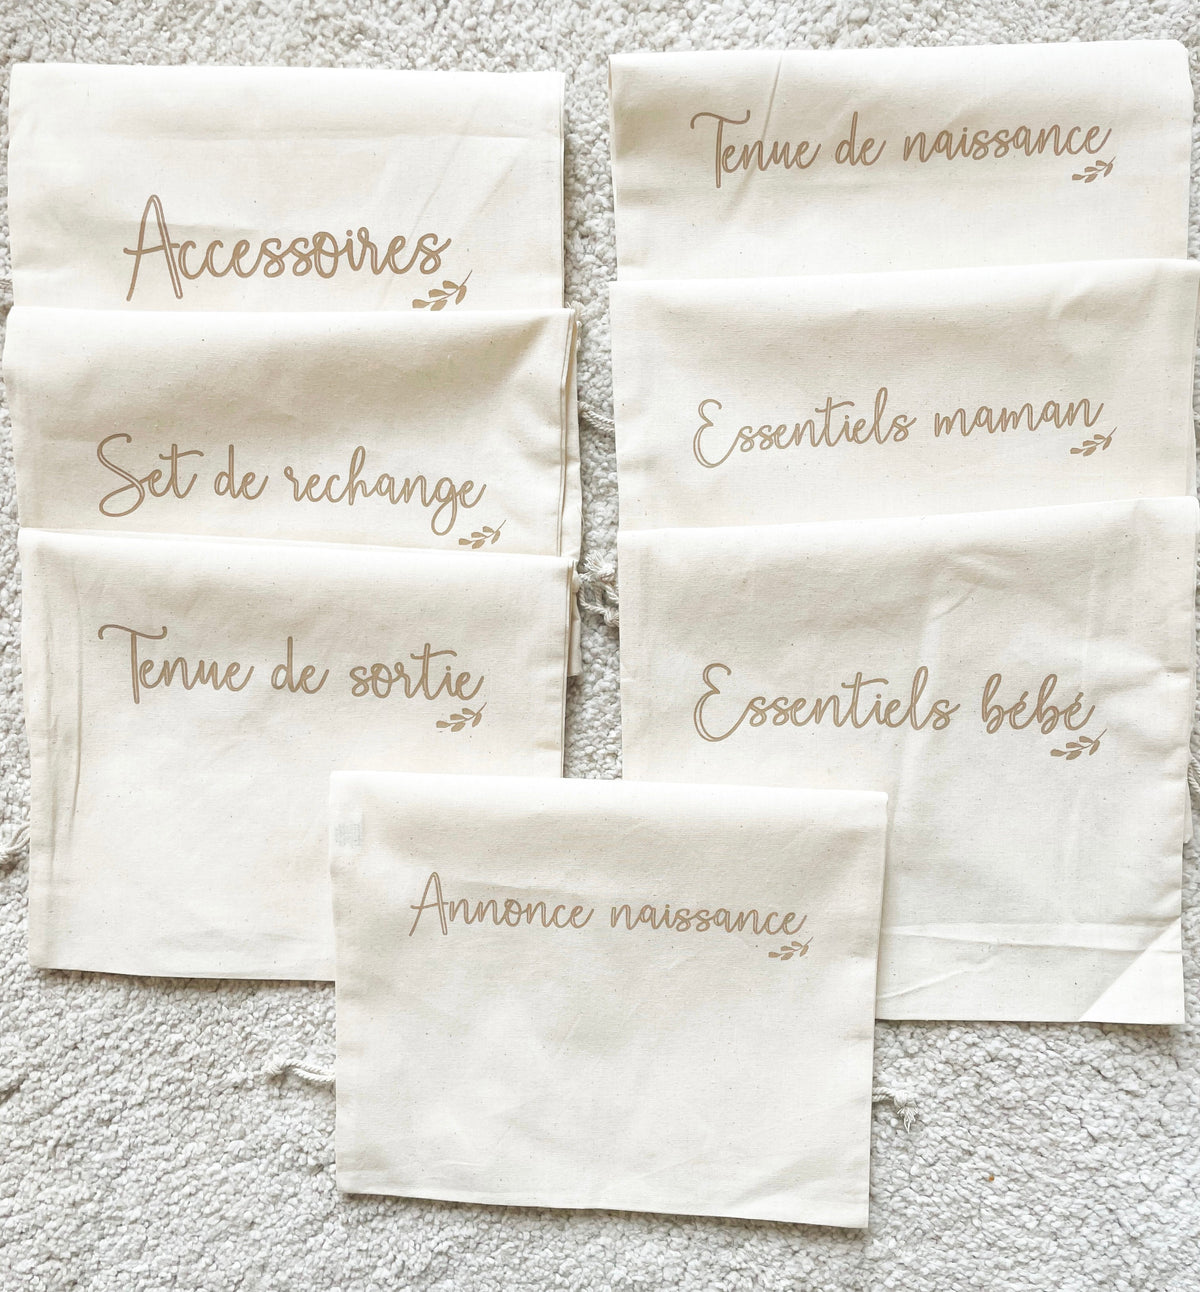 Accessoires
Set de rechange
Tenue de sortie
Tenue de naissance
Essentiels maman
Essentiels bébé
Annonce naissance